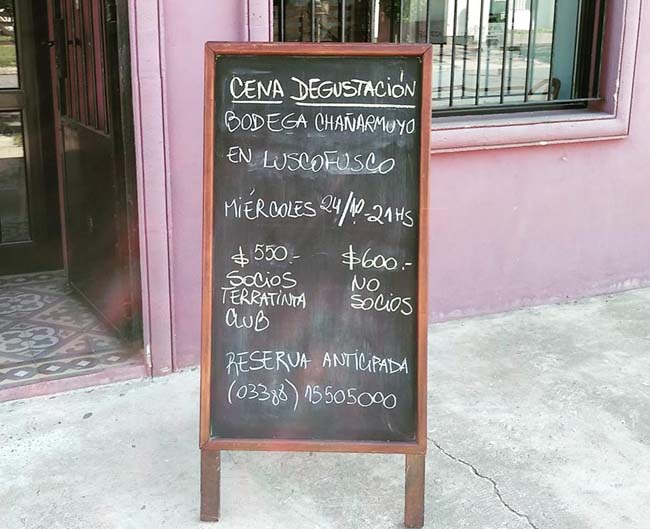 CENA DEGUSTACIÓN
BODEGA CHAÑARMUYO
EN LUSCOFUSCO
MIÉRCOLES 24/10-21HS
$550.- $600.-
SOCIOS NO
TERRATINTA SOCIOS
CLUB
RESERVA ANTICIPADA
(03388) 15505000